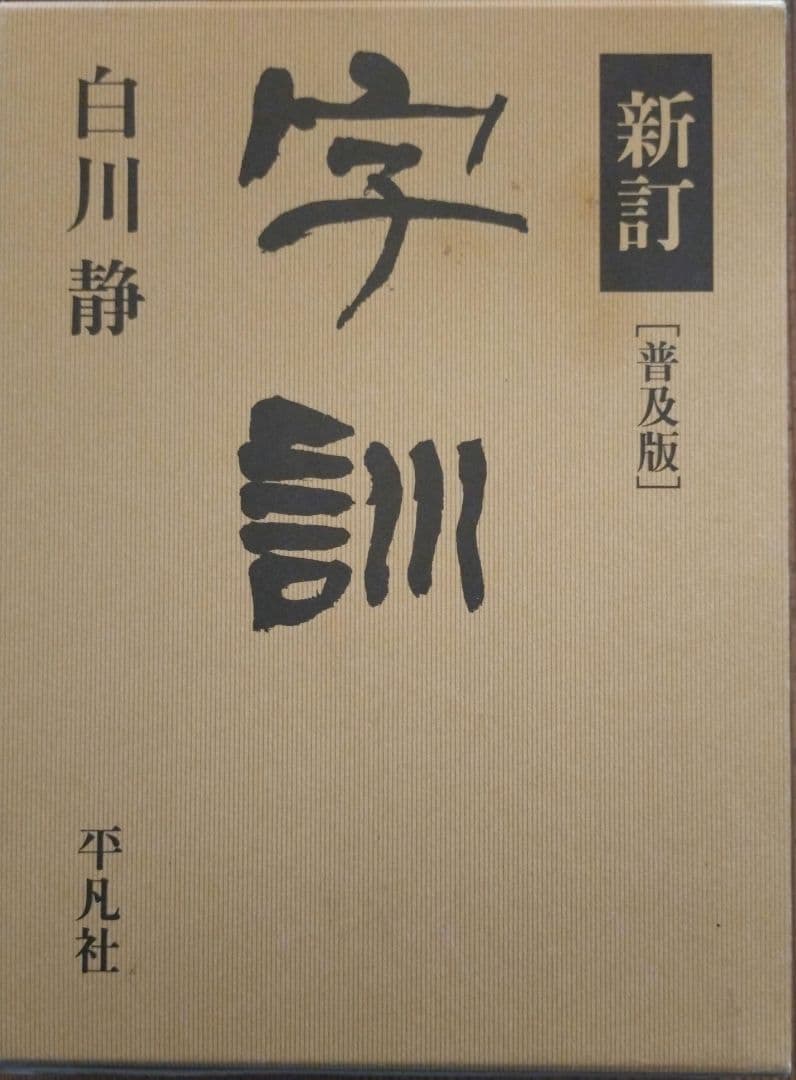 新訂
[普及版]
字訓
白川静
平凡社